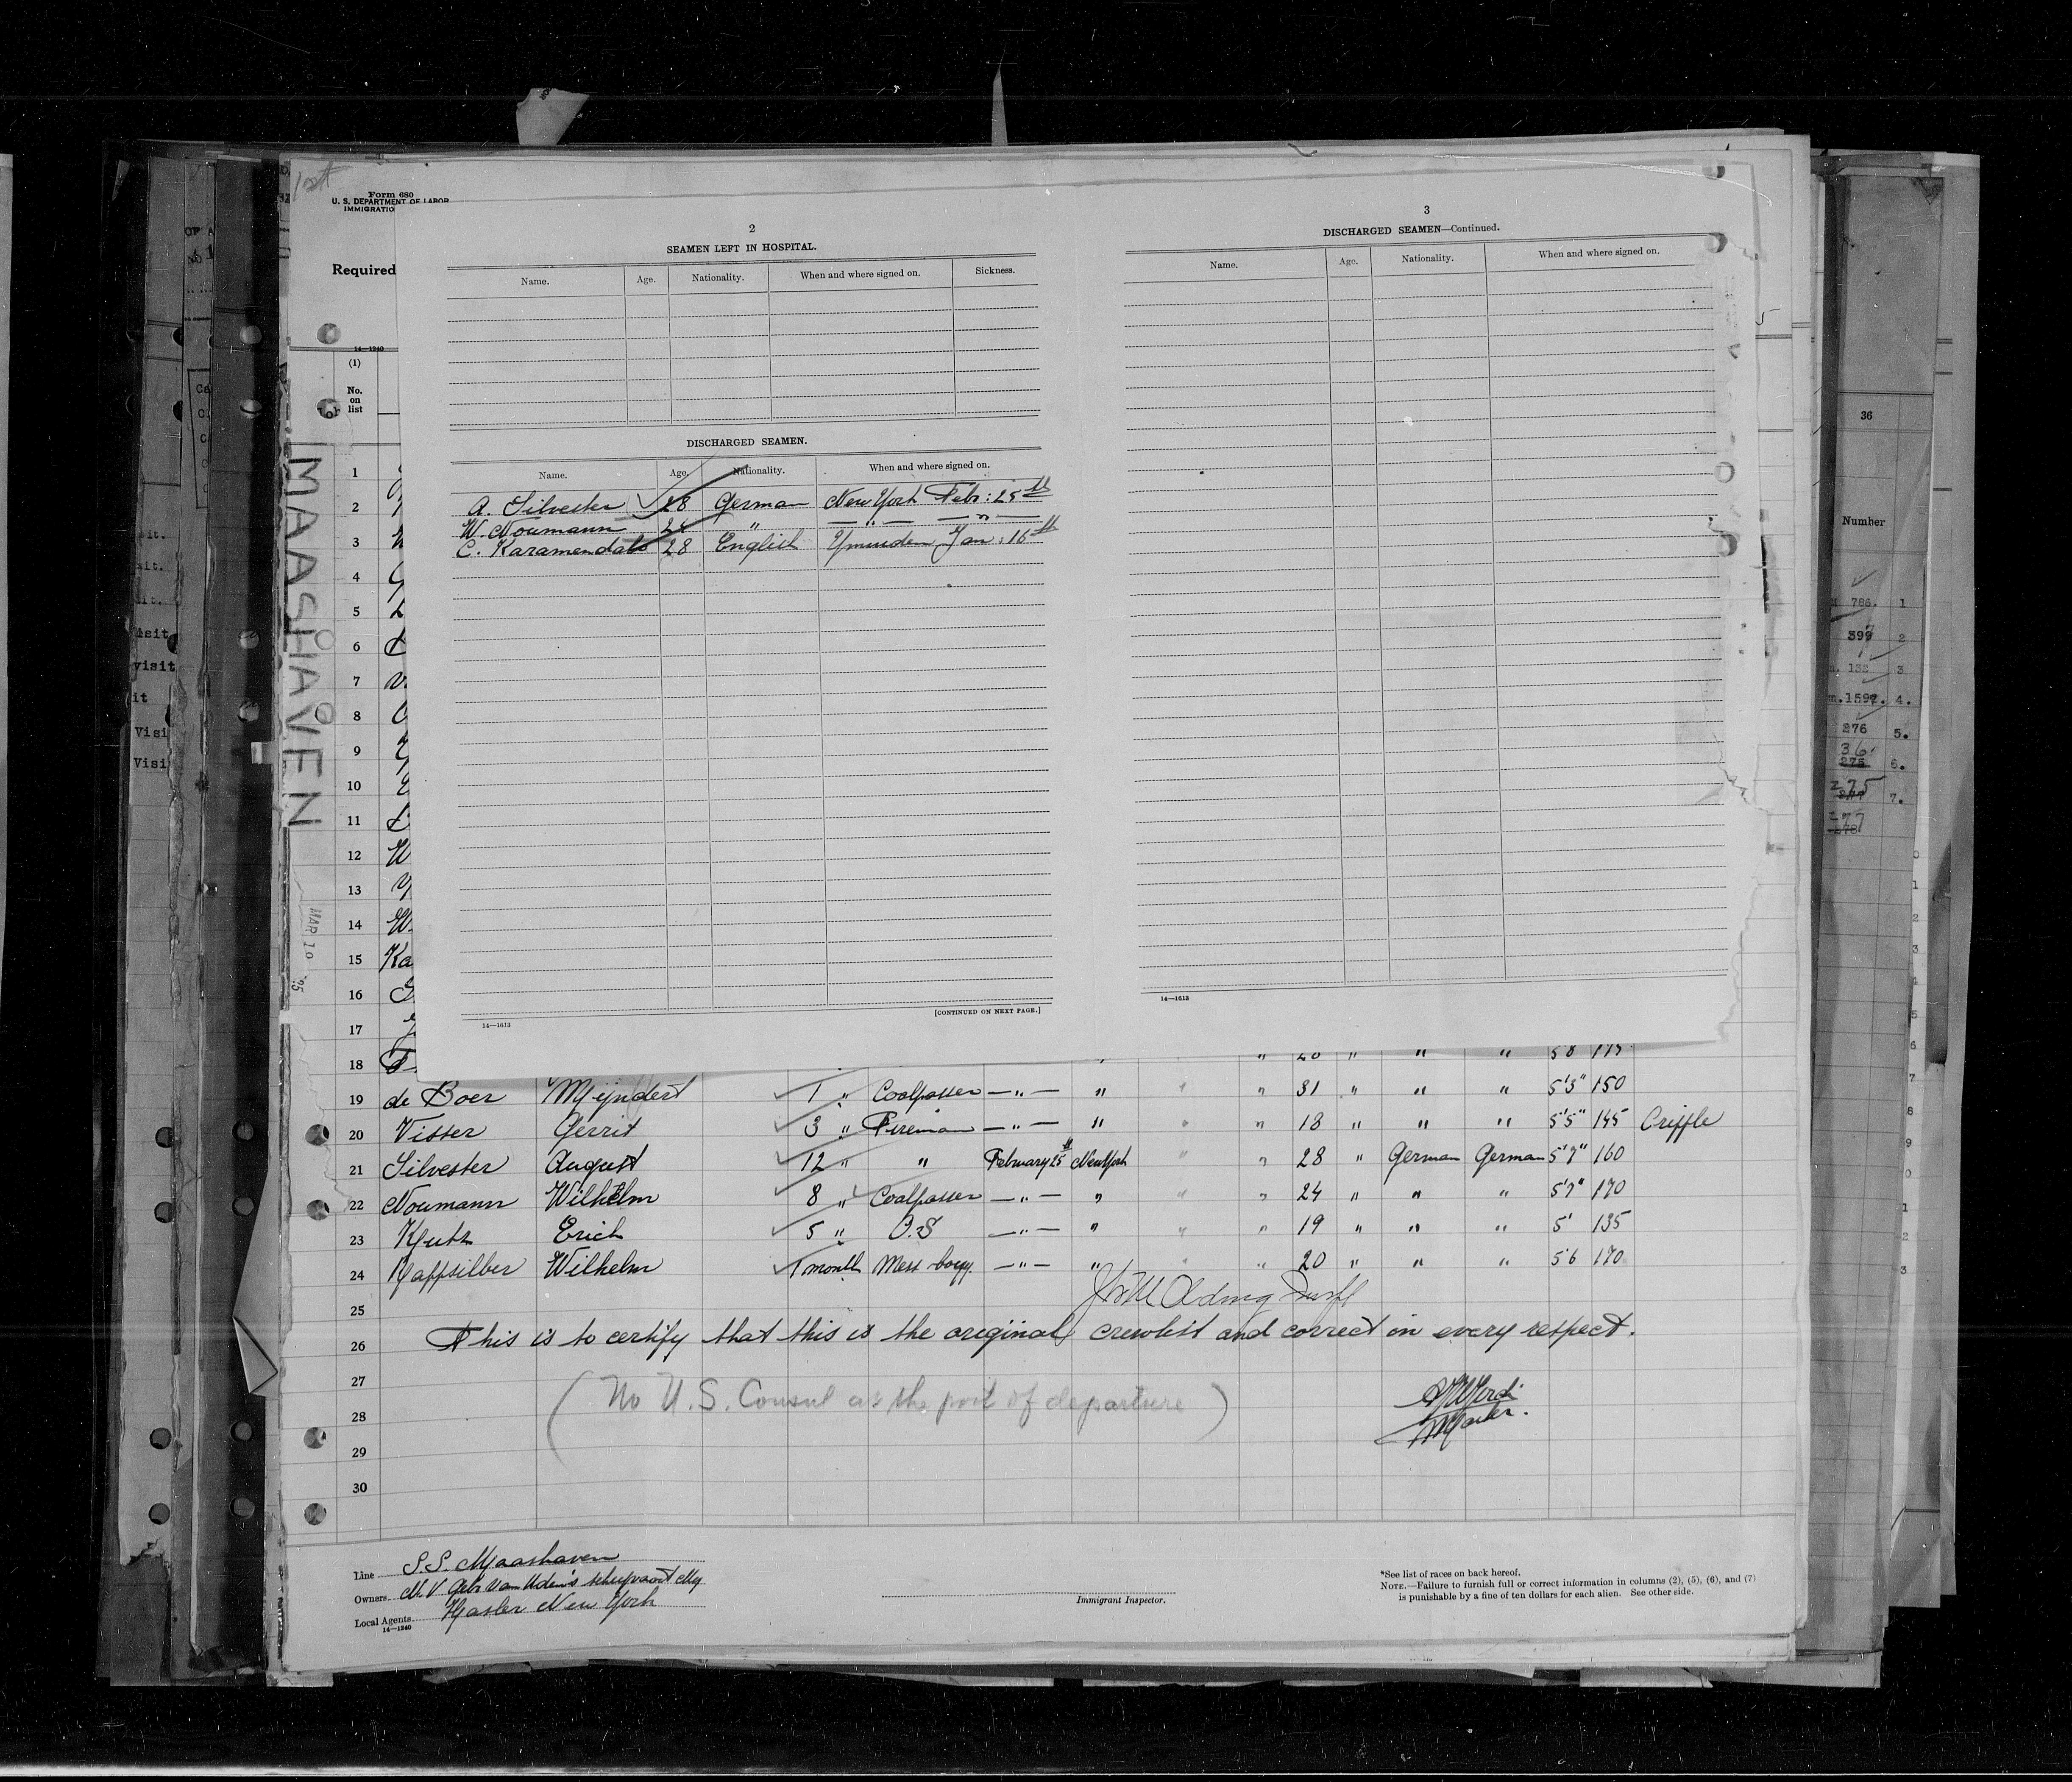 Form 680
U. S. DEPARTMENT OF LABOR
IMMIGRATIO
Required
14—1240
(1)
No.
on
list
MAASHAVEN
MAR 10
2
SEAMEN LEFT IN HOSPITAL.
Name. Age. Nationality. When and where signed on. Sickness.
DISCHARGED SEAMEN.
Name. Age. Nationality. When and where signed on.
A. Silvester 28 German New York Febr: 25th
W. Noumann 24 " — " — — " —
C. Karamendats 28 English Ymuiden Jan: 16th
14—1613
[CONTINUED ON NEXT PAGE.]
3
DISCHARGED SEAMEN—Continued.
Name. Age. Nationality. When and where signed on.
14—1613
1
2
3
4
5
6
7
8
9
10
11
12
13
14
15 Ka
16
17
18 " " " " 5'8 175
19 de Boer Mijndert 1 " Coalpasser — " — " " " 31 " " " 5'3" 150
20 Visser Gerrit 3 " Fireman — " — " " " 18 " " " 5'5" 145 Criffle
21 Silvester August 12 " " February 25th New York " " 28 " German German 5'7" 160
22 Noumann Wilhelm 8 " Coalpasser — " — " " " 24 " " " 5'7" 170
23 Kutz Erich 5 " O.S — " — " " " 19 " " " 5' 135
24 Haffsilber Wilhelm 1 month Mess boy — " — " " " 20 " " " 5'6 170
25
26 This is to certify that this is the original crewlist and correct in every respect.
27
(No U.S. Consul at the port of departure)
28
Master.
29
30
Line S.S. Maashaven
Owners N.V. Gebr van Uden's scheepvaart My
Local Agents Hasler New York
14—1240
Immigrant Inspector.
*See list of races on back hereof.
NOTE.—Failure to furnish full or correct information in columns (2), (5), (6), and (7)
is punishable by a fine of ten dollars for each alien. See other side.
visit
it
Visi
Visi
36
Number
786. 1
399 2
132 3
1597. 4.
276 5.
36
6.
275
7.
277